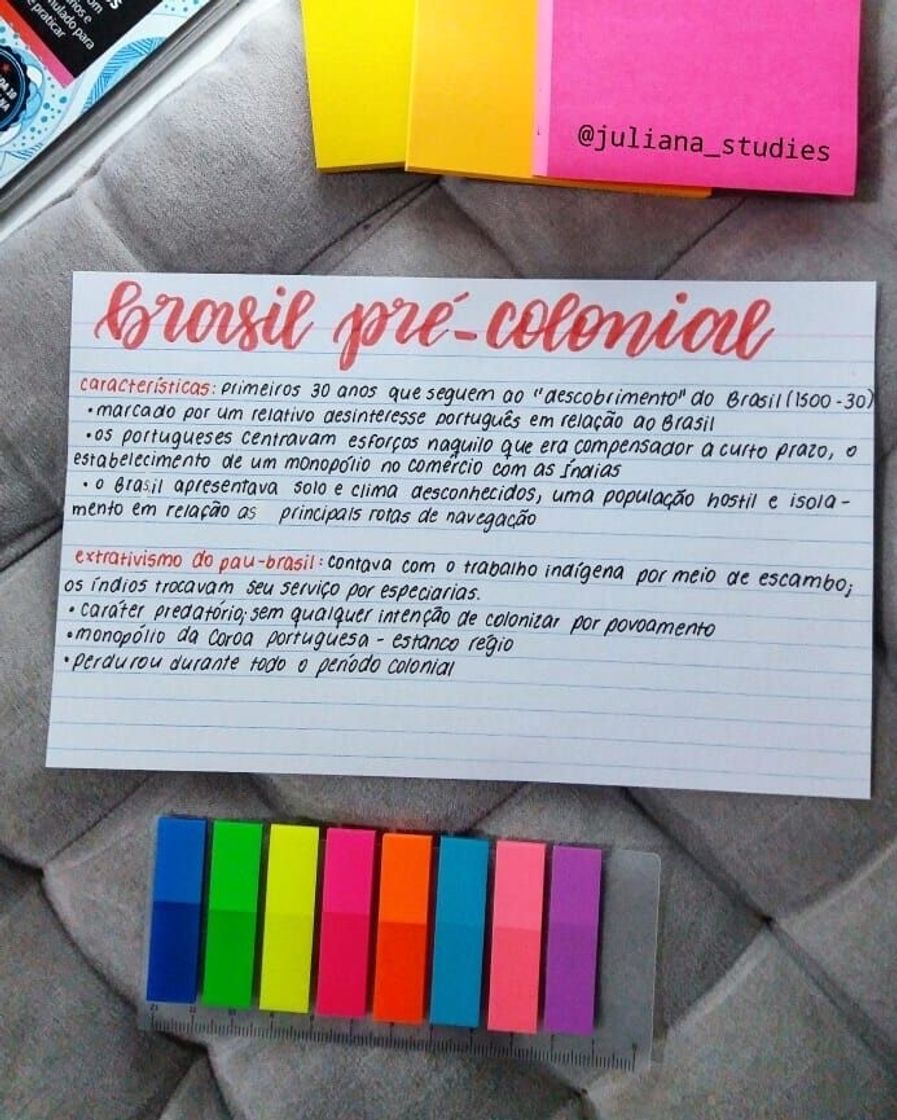 om
rios e
mulado para
e praticar
@juliana_studies
brasil pré-colonial
características: primeiros 30 anos que seguem ao "descobrimento" do Brasil (1500-30)
•marcado por um relativo desinteresse português em relação ao Brasil
•os portugueses centravam esforços naquilo que era compensador a curto prazo, o
estabelecimento de um monopólio no comércio com as Índias
•o Brasil apresentava solo e clima desconhecidos, uma população hostil e isola-
mento em relação as principais rotas de navegação
extrativismo do pau-brasil: contava com o trabalho indígena por meio de escambo;
os índios trocavam seu serviço por especiarias.
•caráter predatório; sem qualquer intenção de colonizar por povoamento
•monopólio da Coroa portuguesa - estanco régio
•perdurou durante todo o período colonial